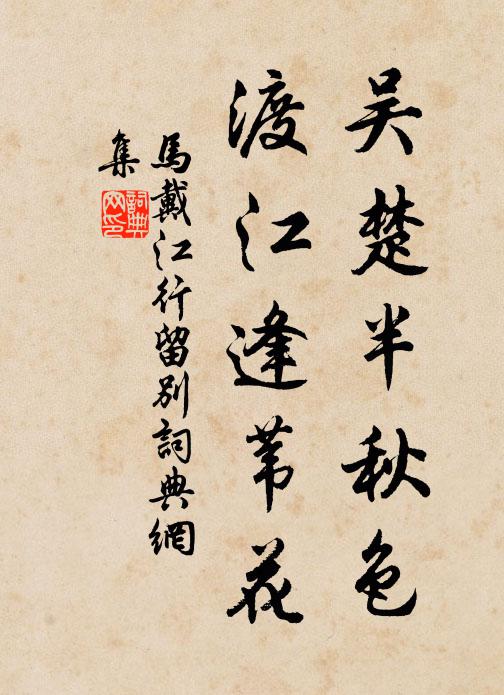 吴楚半秋色
渡江逢苇花
馬戴江行留别詞典網
集
詞典
网印